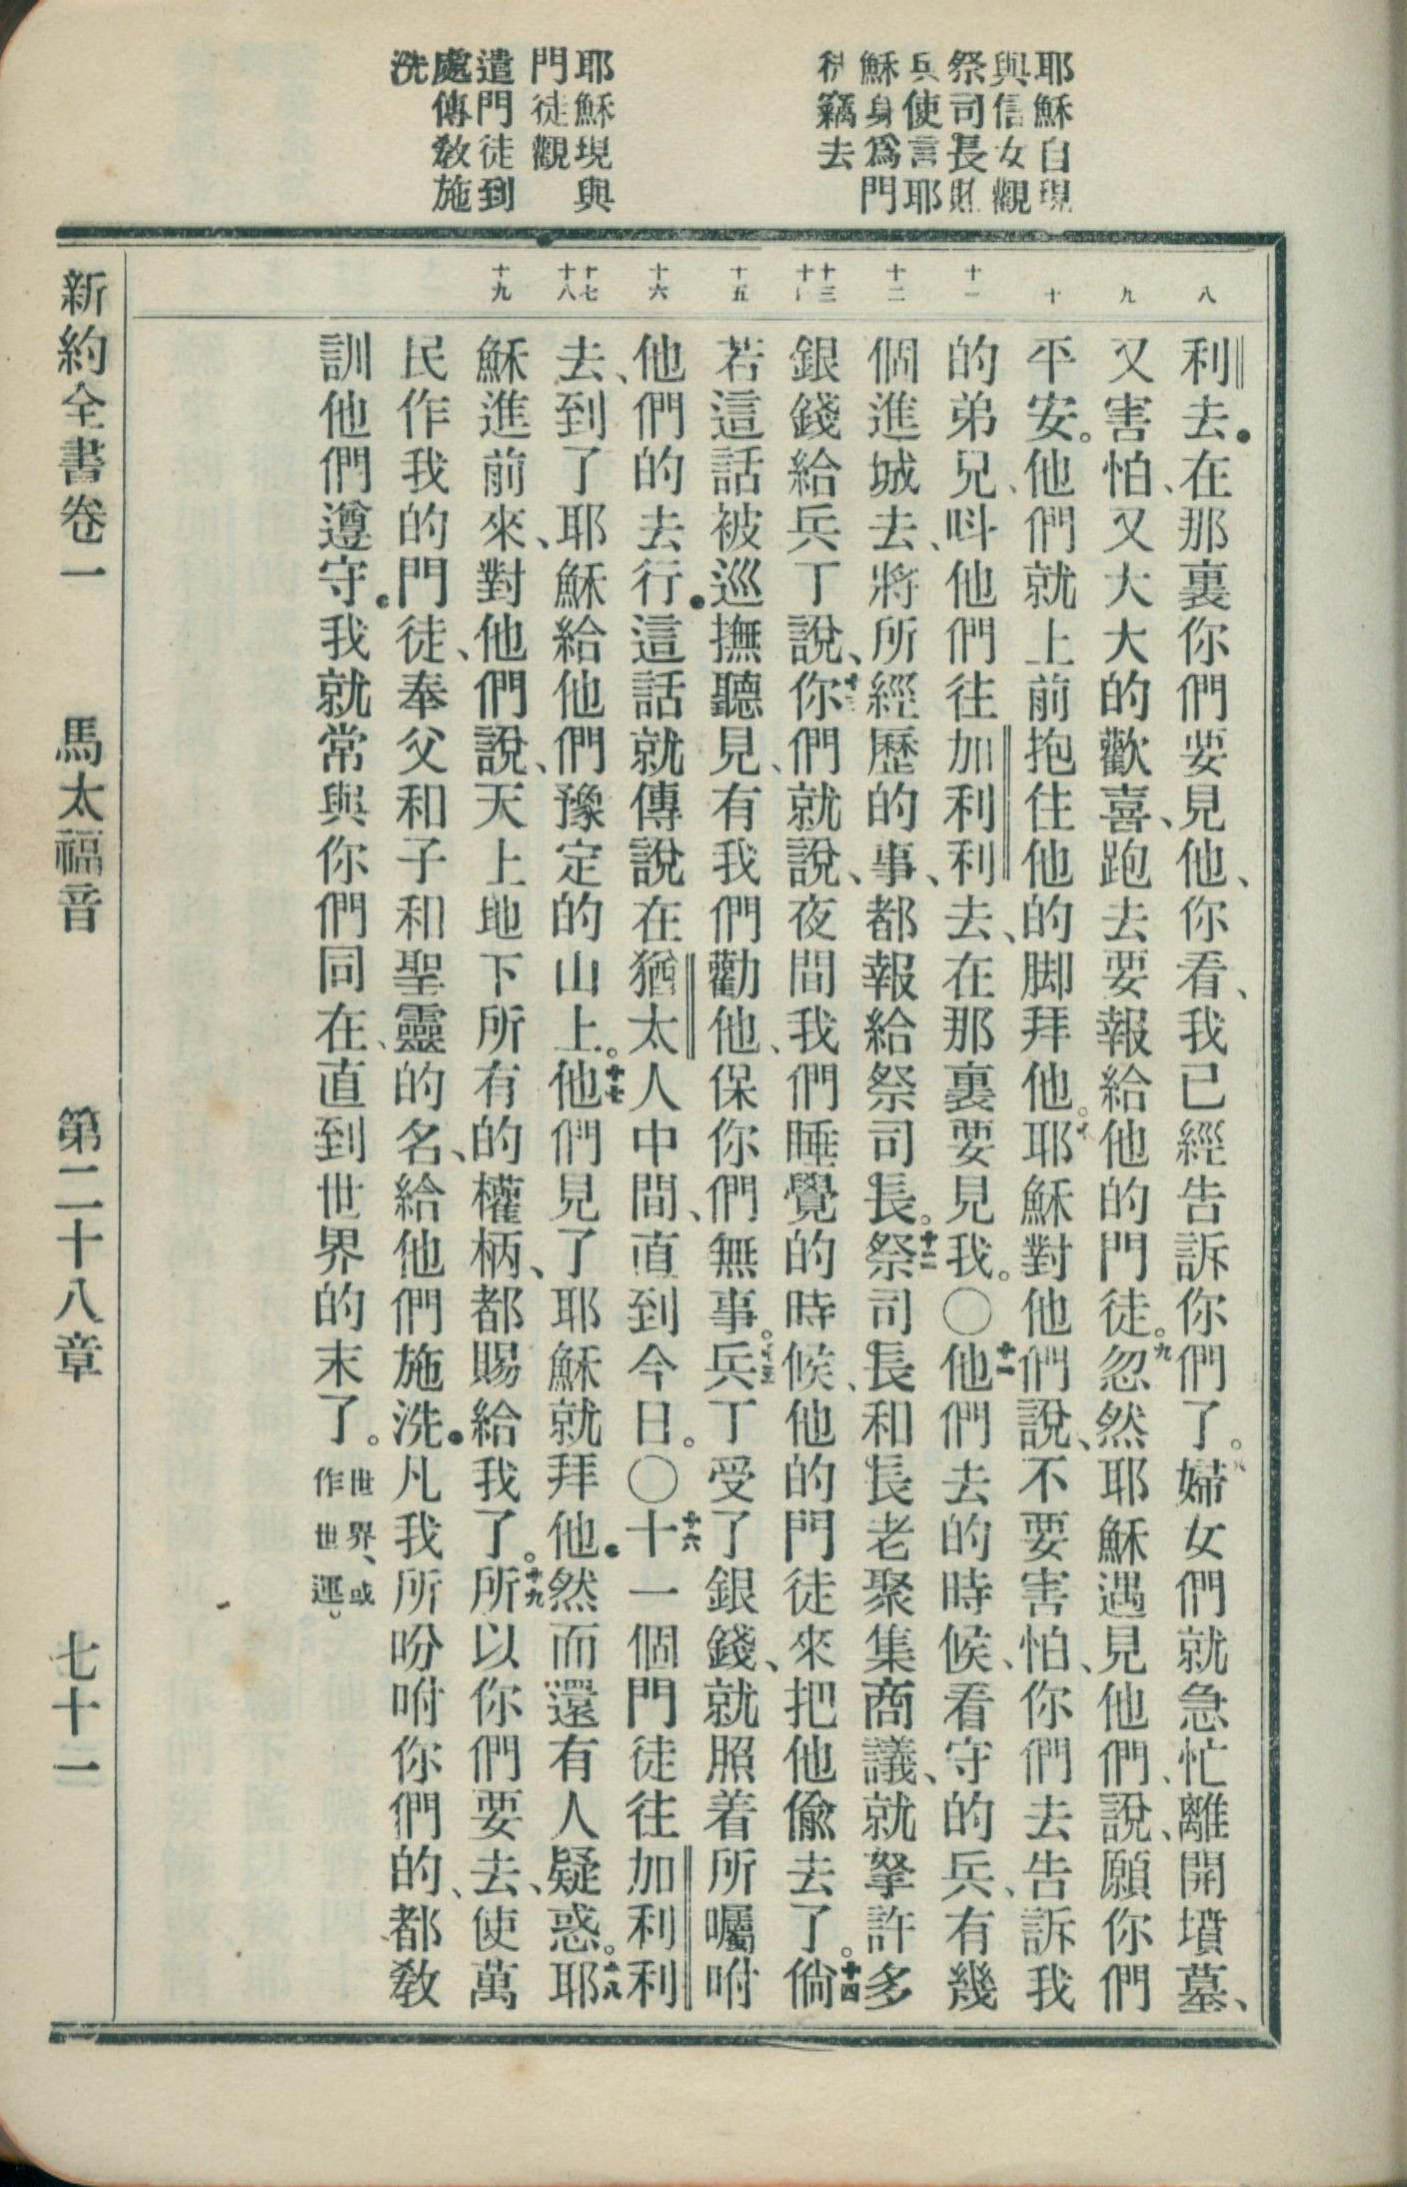 耶穌自現
與信女觀
祭司長賍
兵使言耶
穌身爲門
徒竊去
耶穌現與
門徒觀
遣門徒到
處傳教施
洗
八
九
十
十一
十二
十三
十四
十五
十六
十七
十八
十九
利去．在那裏你們要見他、你看、我已經告訴你們了。八婦女們就急忙離開墳墓、
又害怕、又大大的歡喜、跑去要報給他的門徒。九忽然耶穌遇見他們、說、願你們
平安。他們就上前抱住他的脚拜他。十耶穌對他們說、不要害怕、你們去告訴我
的弟兄、呌他們往加利利去、在那裏要見我。〇十一他們去的時候、看守的兵、有幾
個進城去、將所經歷的事、都報給祭司長。十二祭司長和長老聚集商議、就拏許多
銀錢給兵丁說、十三你們就說、夜間我們睡覺的時候、他的門徒來把他偷去了。十四倘
若這話被巡撫聽見、有我們勸他、保你們無事。十五兵丁受了銀錢、就照着所囑咐
他們的去行．這話就傳說在猶太人中間、直到今日。〇十六十一個門徒往加利利
去、到了耶穌給他們豫定的山上。十七他們見了耶穌就拜他．然而還有人疑惑。十八耶
穌進前來、對他們說、天上地下所有的權柄、都賜給我了。十九所以你們要去、使萬
民作我的門徒、奉父和子和聖靈的名、給他們施洗．凡我所吩咐你們的、都教
訓他們遵守．我就常與你們同在、直到世界的末了。世界、或作世運。
新約全書卷一　馬太福音　第二十八章　七十一